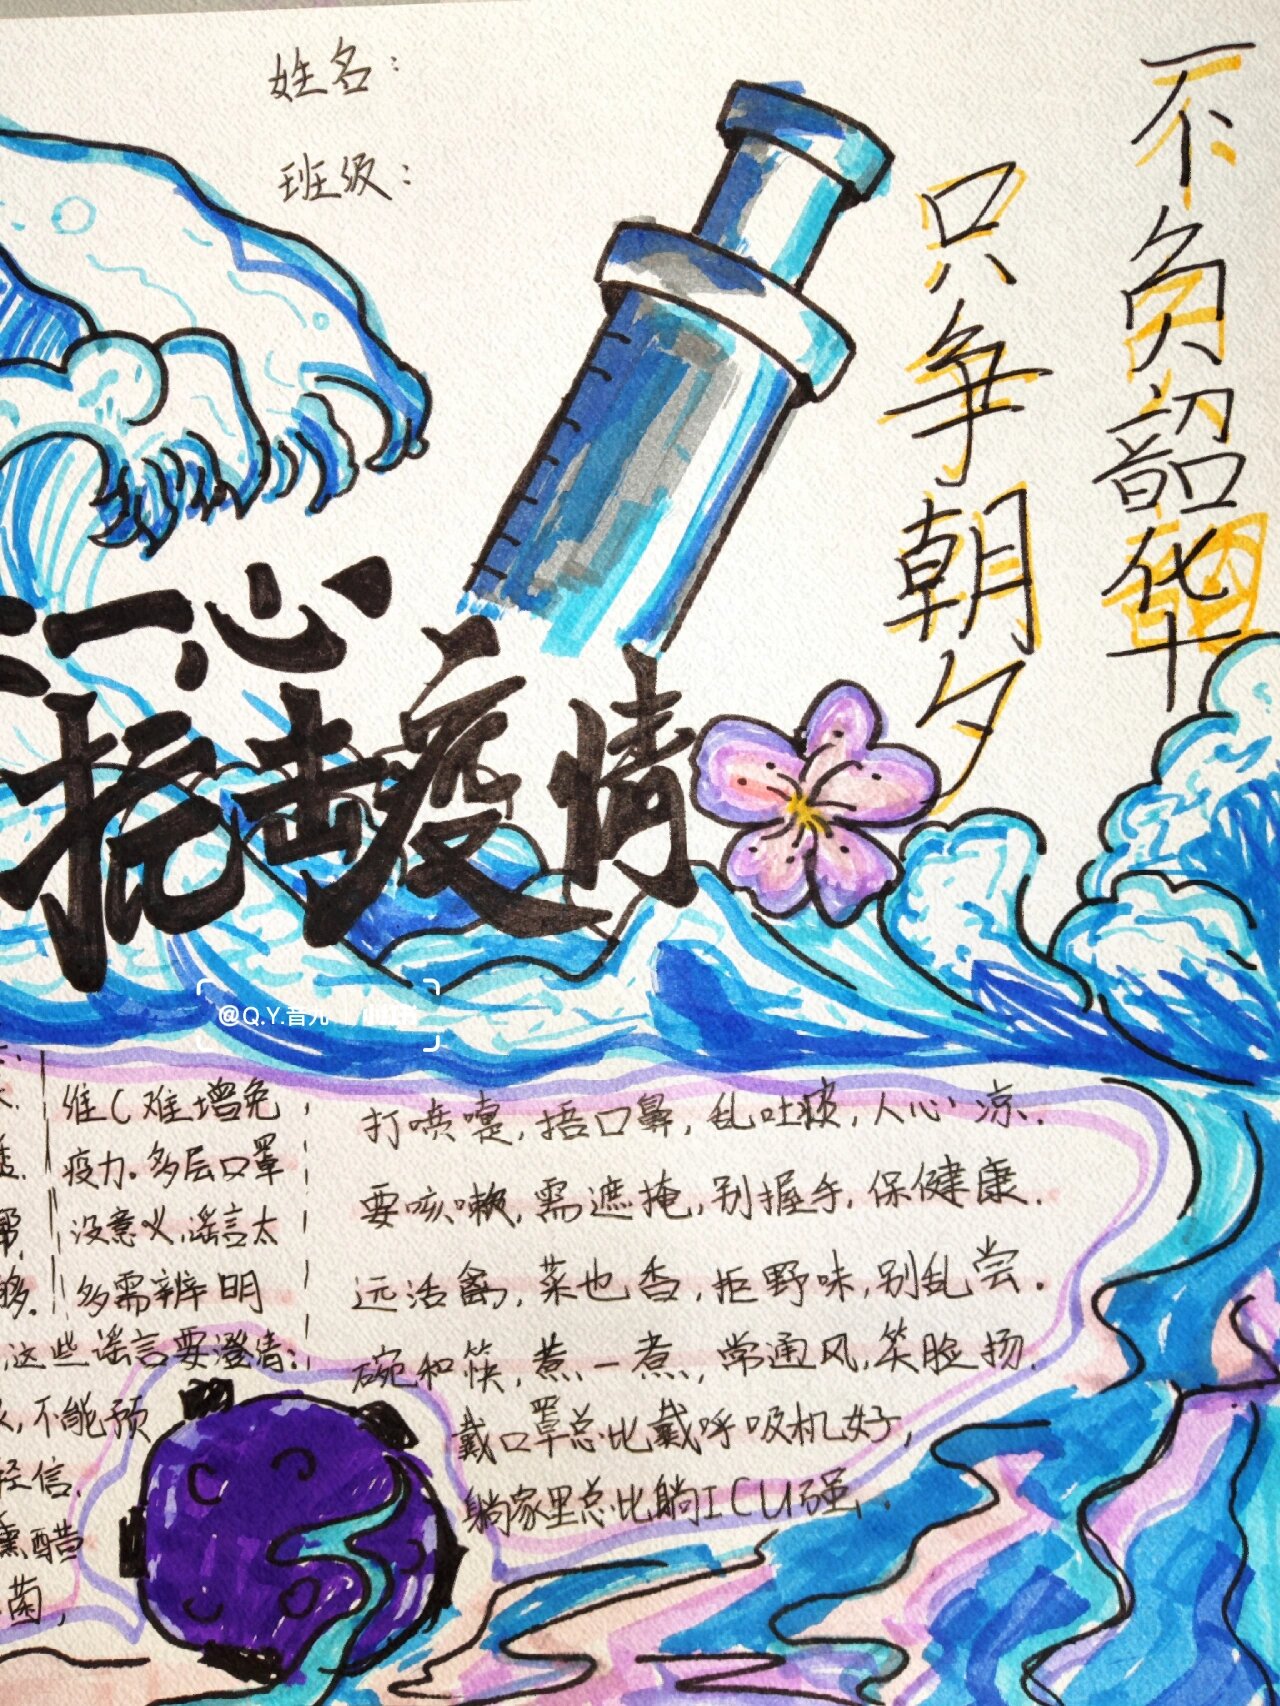 姓名：
班级：
不负韶华
只争朝夕
一心
抗击疫情
@Q.Y.音儿
维C难增免
疫力。多层口罩
没意义,谣言太
多需辨明
够。
,这些谣言要澄清:
,不能预
轻信.
熏醋
菌,
打喷嚏,捂口鼻,乱吐痰,人心凉.
要咳嗽,需遮掩,别握手,保健康.
远活禽,菜也香,拒野味,别乱尝.
碗和筷,煮一煮,常通风,笑脸扬.
戴口罩总比戴呼吸机好,
躺家里总比躺ICU强.